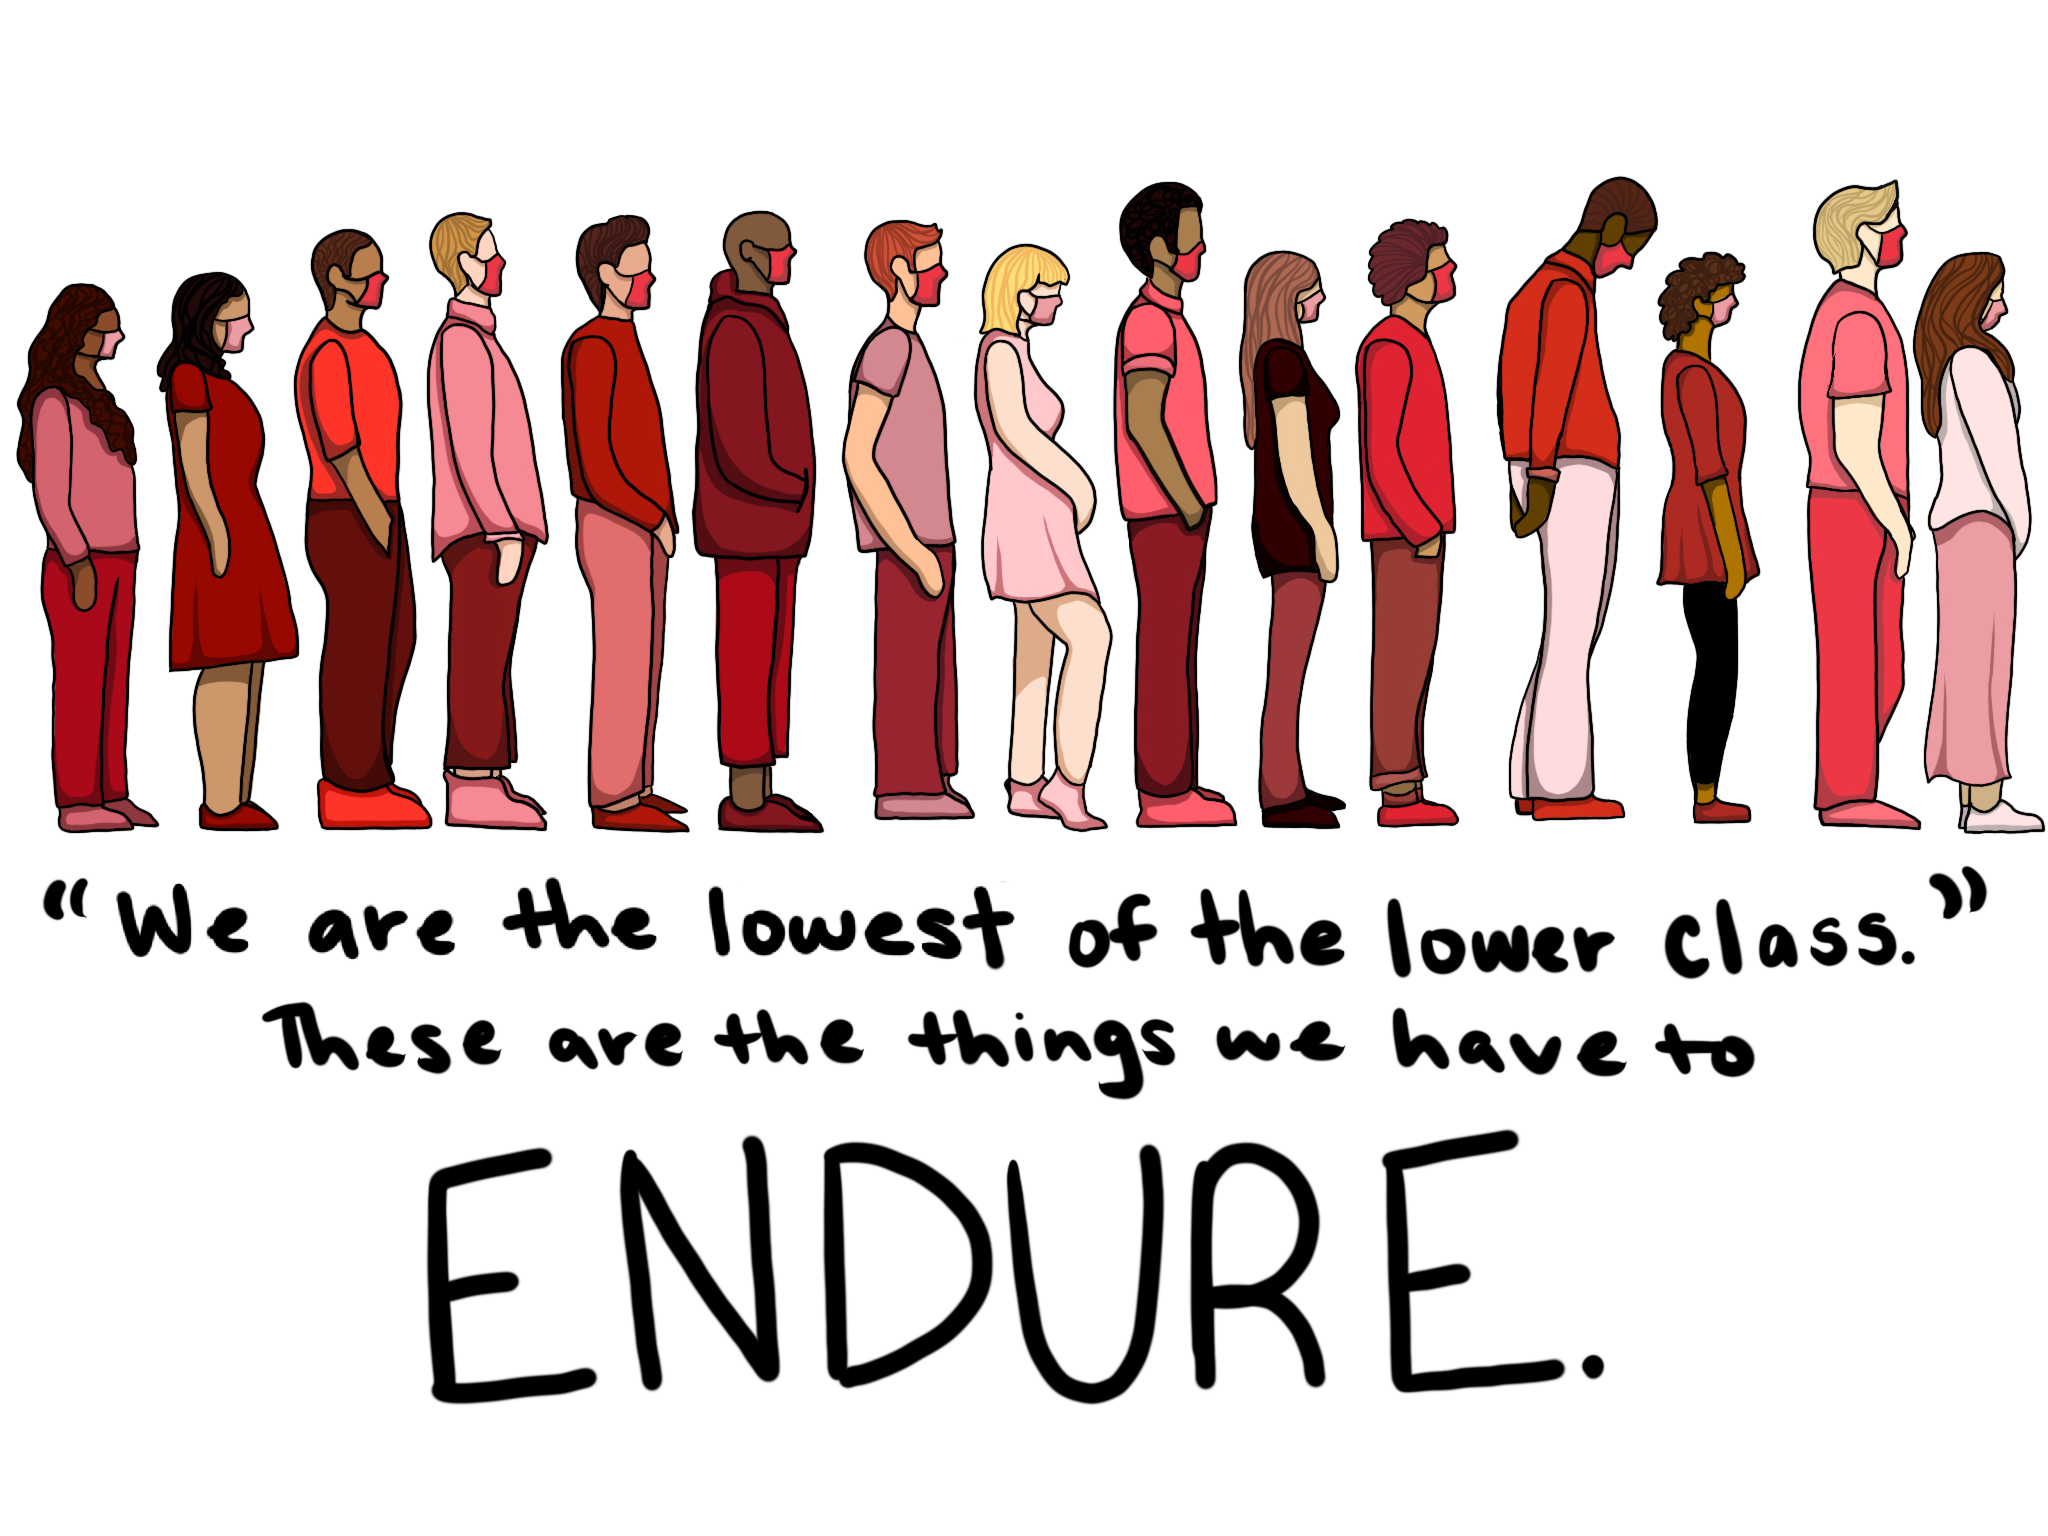 “We are the lowest of the lower class.”
These are the things we have to
ENDURE.